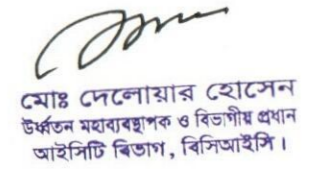 মোঃ দেলোয়ার হোসেন
উর্ধ্বতন মহাব্যবস্থাপক ও বিভাগীয় প্রধান
আইসিটি বিভাগ, বিসিআইসি।